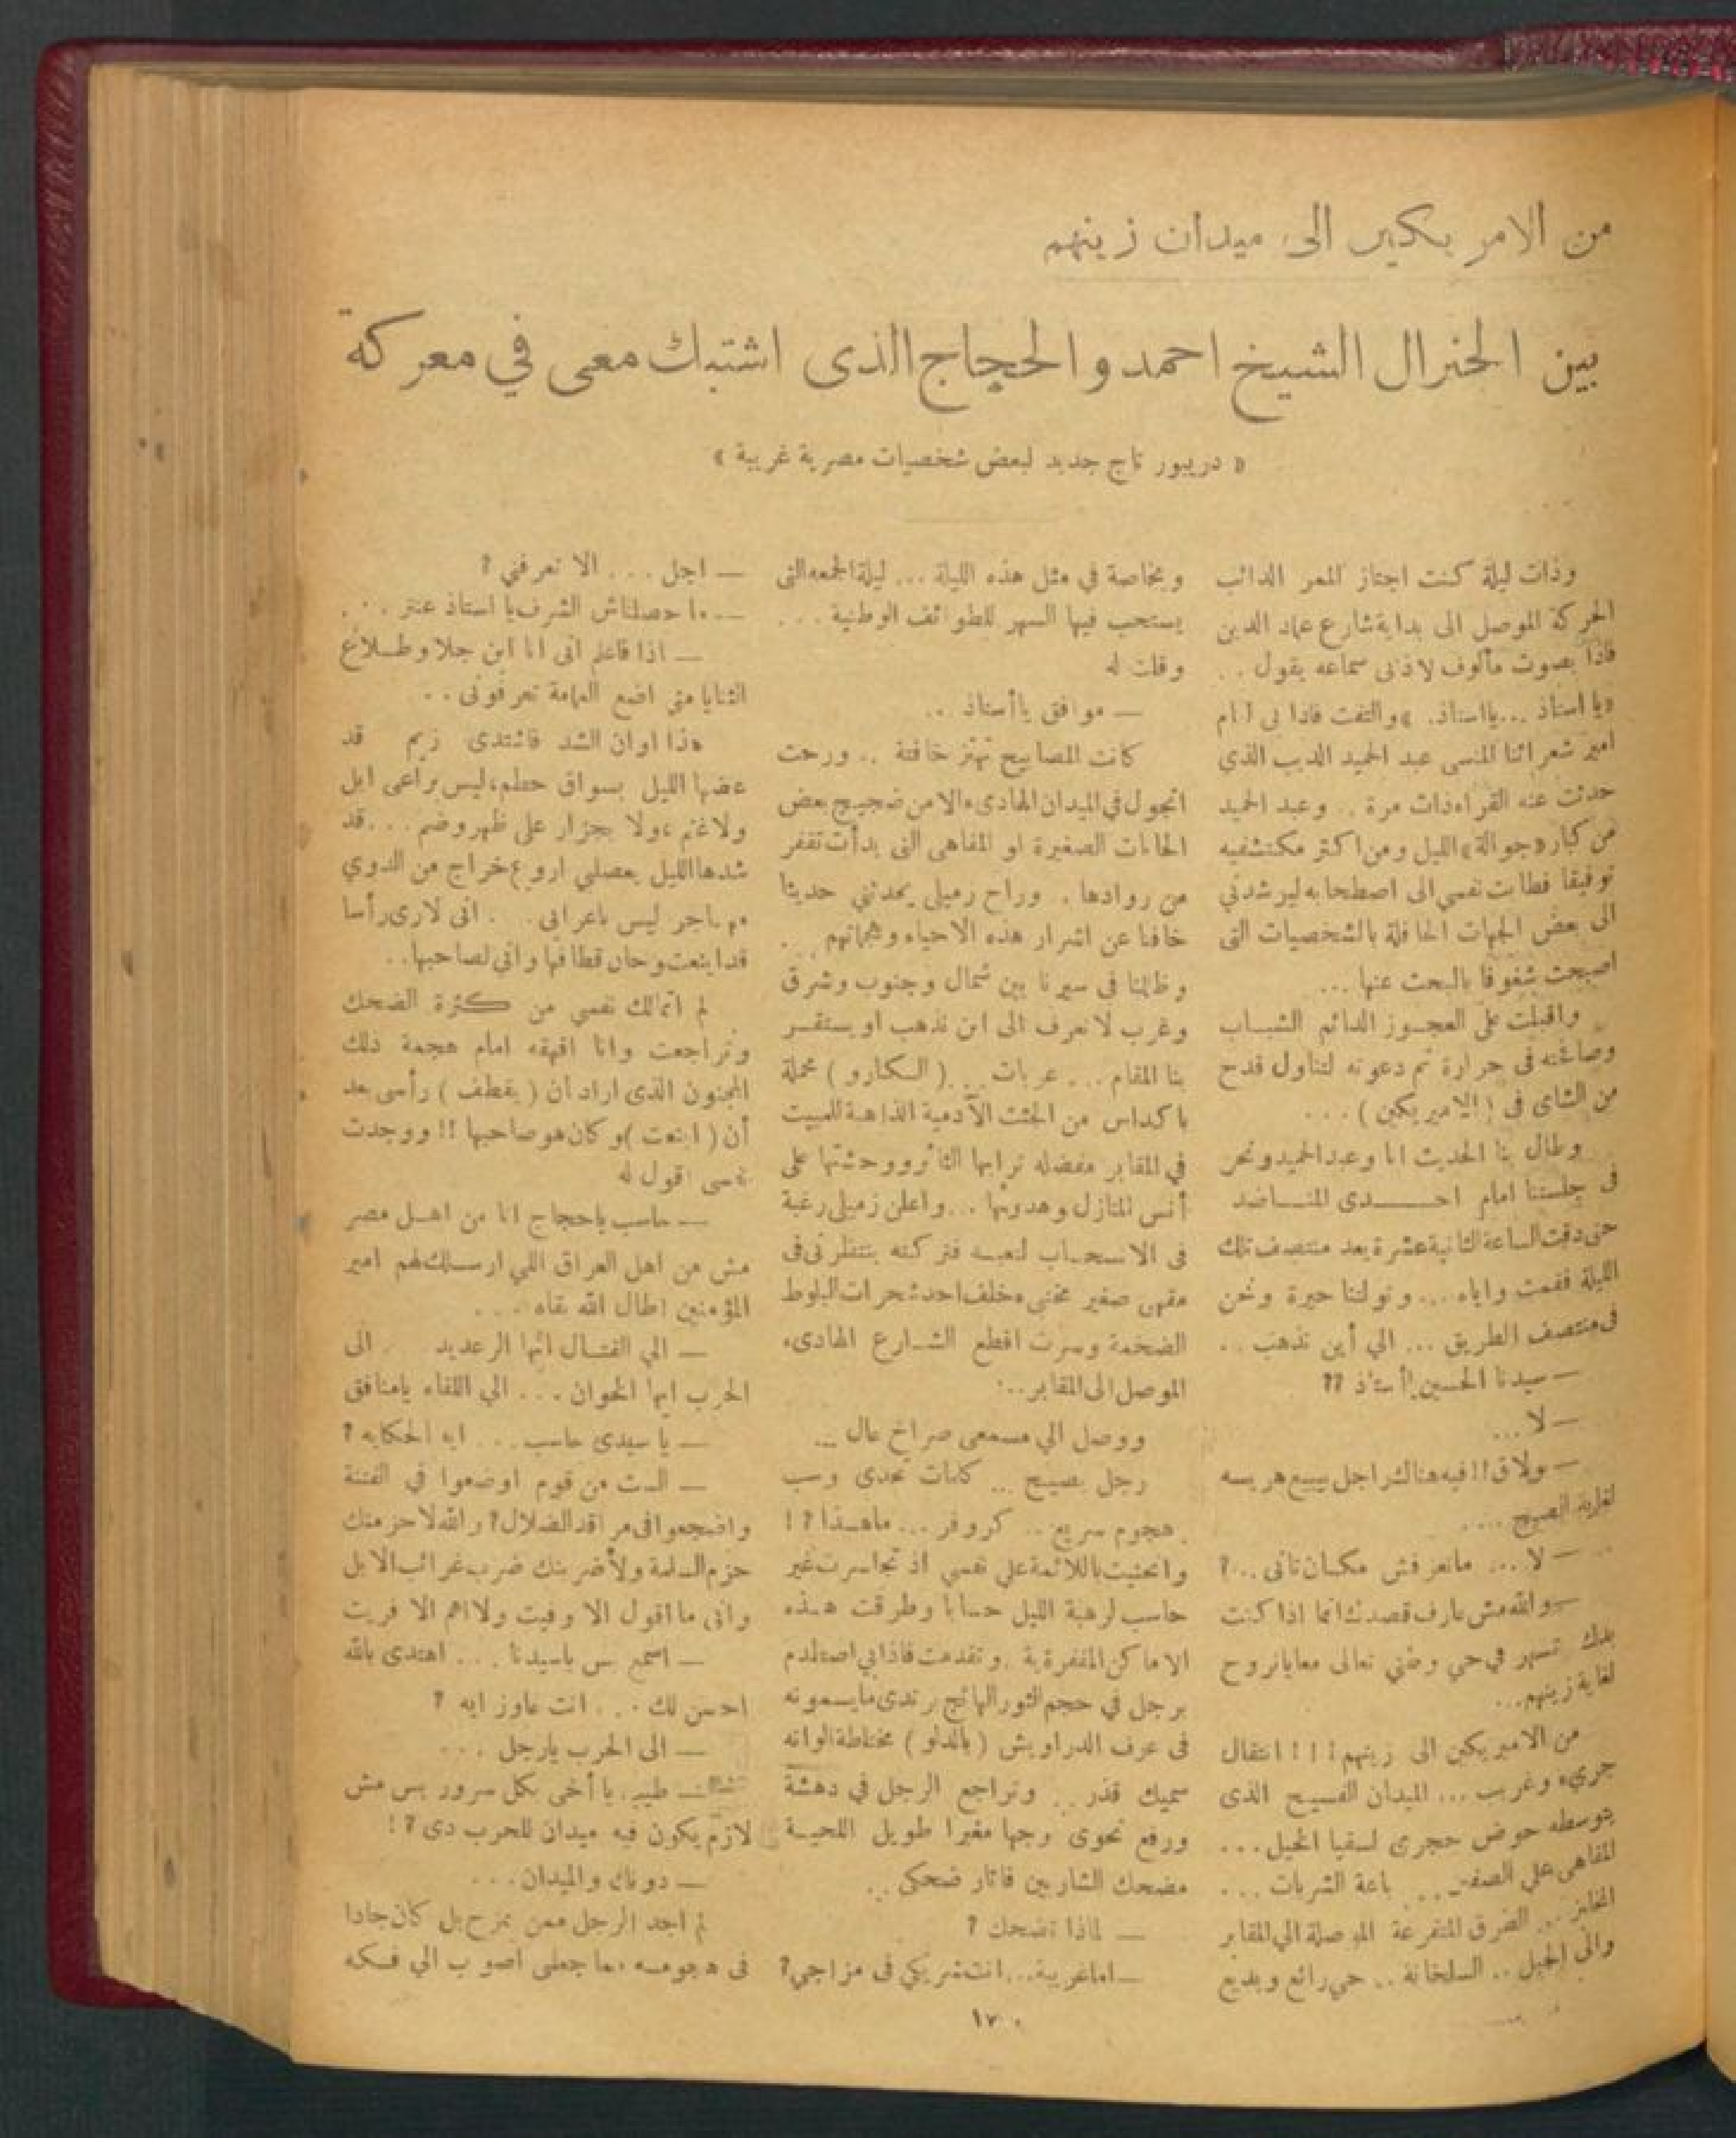 من الامر بكين الى ميدان زينهم
بين الجنرال الشيخ احمد والحجاج الذى اشتبك معى في معركة
« دريبور تاج جديد لبعض شخصيات مصرية غريبة »
وذات ليلة كنت اجتاز الممر الدائب
الحركة الموصل الى بداية شارع عماد الدين
فاذا بصوت مألوف لاذنى سماعه يقول ..
«يا استاذ ...يااستاذ. » والتفت فاذا بى امام
امير شعرائنا المنسى عبد الحميد الديب الذي
حدثت عنه القراء ذات مرة .. وعبد الحميد
من كبار «جوالة» الليل ومن اكثر مكتشفيه
توفيقا فطابت نفسي الى اصطحابه ليرشدني
الى بعض الجهات الحافلة بالشخصيات التى
اصبحت شغوفا بالبحث عنها ...
واقبلت على العجوز الدائم الشباب
وصافحته فى حرارة ثم دعوته لتناول قدح
من الشاى فى (الامريكين) ...
وطال بنا الحديث انا وعبد الحميد ونحن
فى جلستنا امام احدى المناضد
حتى دقت الساعة الثانية عشرة بعد منتصف تلك
الليلة فقمت واياه... وتولتنا حيرة ونحن
فى منتصف الطريق ... الي أين نذهب ..
— سيدنا الحسين يا أستاذ ??
— لا ...
— ولاق !! فيه هناك راجل يبيع هريسه
لغاية الصبح ....
— لا ... ماتعرفش مكان تانى ...?
— والله مش عارف قصدك انما اذا كنت
بدك تسهر في حي وطني تعالى معايا نروح
لغاية زينهم...
من الامريكين الى زينهم !!! انتقال
جرىء وغريب ... الميدان الفسيح الذى
يتوسطه حوض حجرى لسقيا الخيل ...
المقاهى على الصفين .. باعة الشربات ...
المخابز ... الطرق المتفرعة الموصلة الي المقابر
والى الجبل .. السلخانة .. حي رائع وبديع
وبخاصة في مثل هذه الليلة ... ليلة الجمعه التى
يستحب فيها السهر للطوائف الوطنية ...
وقلت له
— موافق ياأستاذ ..
كانت المصابيح تهتز خافتة .. ورحت
اتجول في الميدان الهادىء الا من ضجيج بعض
الحانات الصغيرة او المقاهى التى بدأت تقفر
من روادها . وراح زميلى يحدثني حديثا
خافتا عن اشرار هذه الاحياء وهجماتهم ..
وظللنا فى سيرنا بين شمال وجنوب وشرق
وغرب لا نعرف الى اين نذهب او يستقر
بنا المقام ... عربات ...(الكارو ) محملة
باكداس من الجثث الآدمية الذاهبة للمبيت
في المقابر مفضله ترابها الثائر ووحشتها على
أنس المنازل وهدوئها ... واعلن زميلى رغبة
فى الانسحاب لتعبه فتركته ينتظرنى فى
مقهى صغير مختىء خلف احد شجرات البلوط
الضخمة وسرت اقطع الشارع الهادىء
الموصل الى المقابر...
ووصل الي مسمعى صراخ عال ...
رجل يصيح ... كلمات تحدى وسب
هجوم سريع .. كر وفر ... ماهذا ? !
وانحنيت باللائمة على نفسي اذ تجاسرت غير
حاسب لرهبة الليل حسابا وطرقت هذه
الاماكن المقفرة به . وتقدمت فاذا بى اصطدم
برجل في حجم الثور الهائج يرتدى مايسمونه
فى عرف الدراويش (بالدلو ) مختلطة الوانه
سميك قذر .. وتراجع الرجل في دهشة
ورفع نحوى وجها مغبرا طويل اللحية
مضحك الشاربين فاثار ضحكى ..
— لماذا تضحك ?
— اما غريبة... انت شريكى فى مزاجي?
— اجل ... الا تعرفني ?
— ما حصلناش الشرف يا استاذ عنتر ...
— اذا فاعلم انى انا ابن جلا وطلاع
الثنايا متى اضع العمامة تعرفونى ..
هذا اوان الشد فاشتدى زيم قد
عضها الليل بسواق حطم، ليس براعى ابل
ولا غنم ، ولا بجزار على ظهر وضم ... قد
شدها الليل بعصلبي اروع خراج من الدوي
مهاجر ليس باعرابى . . انى لارى رأسا
قد اينعت وحان قطافها وانى لصاحبها ..
لم اتمالك نفسي من كثرة الضحك
وتراجعت وانا اقهقه امام هجمة ذلك
المجنون الذى اراد أن ( يقطف ) رأسى بعد
أن ( اينعت ) وكان هو صاحبها !! ووجدت
نفسى اقول له
— حاسب ياحجاج انا من اهل مصر
مش من اهل العراق اللي ارسلك لهم امير
المؤمنين اطال الله بقاه ...
— الي القتال ايها الرعديد .. الى
الحرب ايها الخوان ... الي اللقاء يامنافق
— يا سيدى حاسب ... ايه الحكايه ?
— الست من قوم اوضعوا في الفتنة
واضجعوا فى مراقد الضلال ? والله لاحزمنك
حزم السلمة ولأضربنك ضرب غرائب الابل
وانى ما اقول الا وفيت ولا اهم الا فريت
— اسمع بس ياسيدنا ... اهتدى بالله
احسن لك ... انت عاوز ايه ?
— الى الحرب يارجل ...
— طيب يا أخى بكل سرور بس مش
لازم يكون فيه ميدان للحرب دى ?!
— دونك والميدان ...
لم اجد الرجل ممن يمزح بل كان جادا
فى هجومه مما جعلى اصوب الي فكه
١٧٠